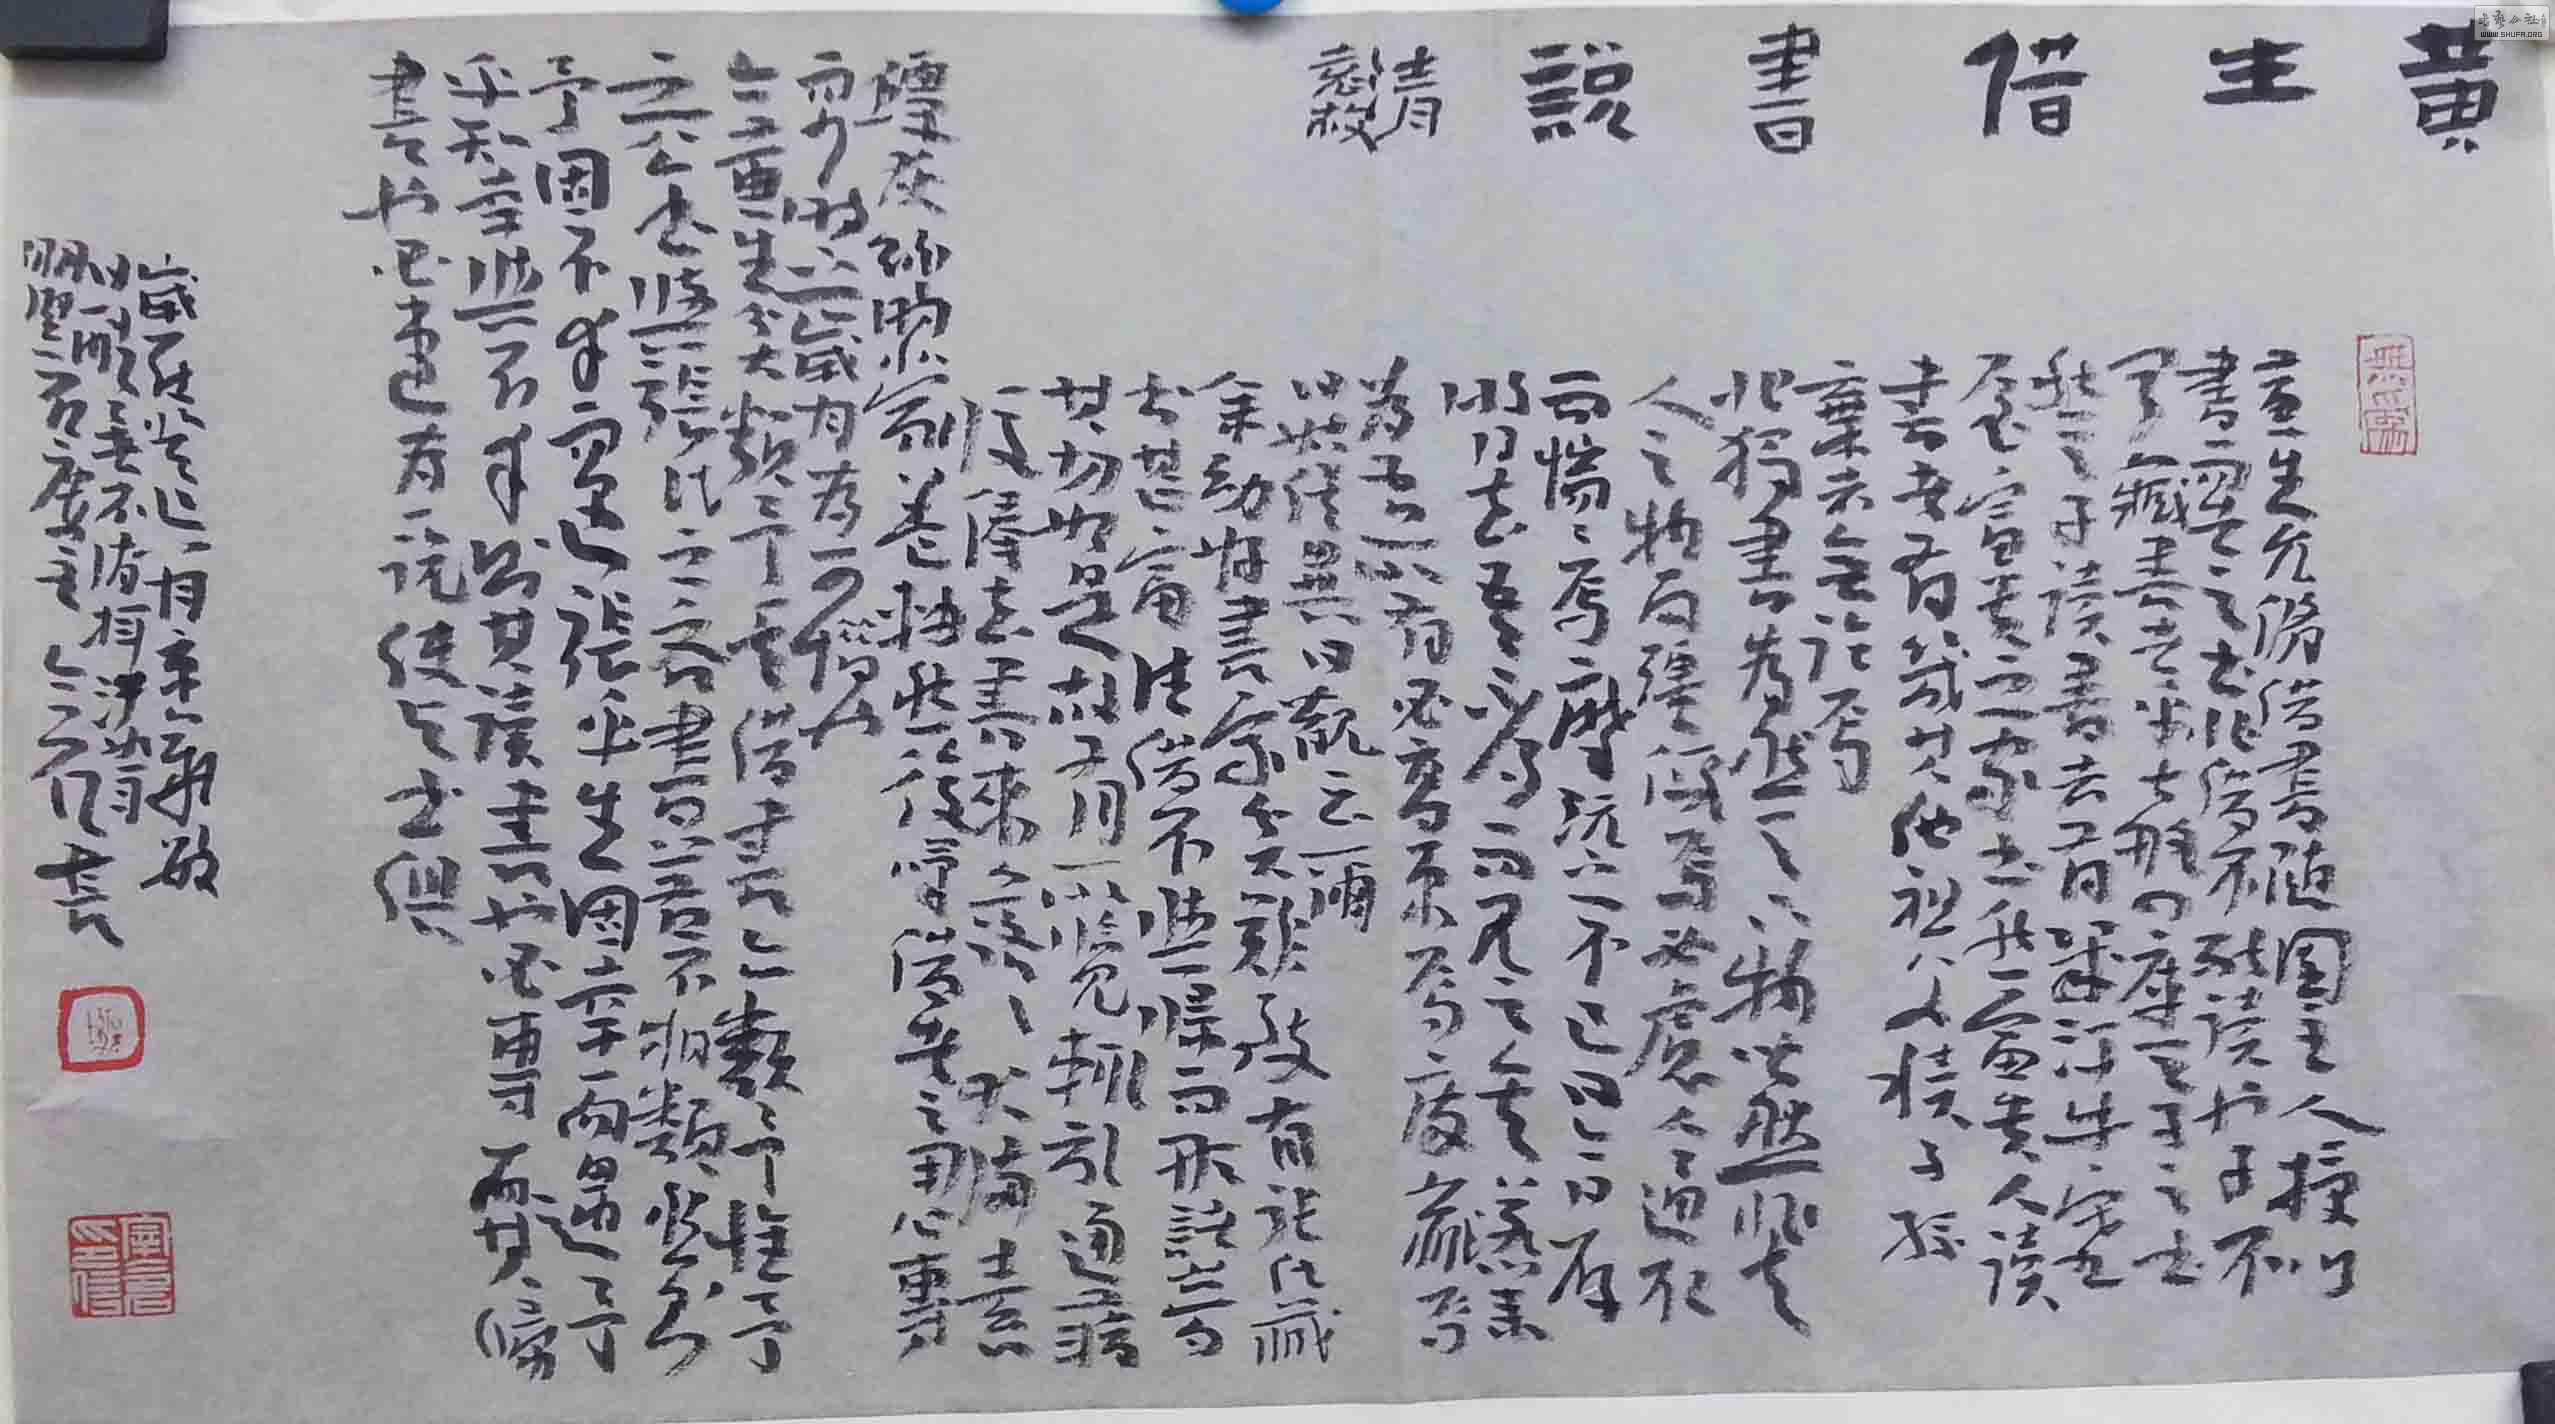 黄生借書説 清 袁枚
黄生允修借書随園主人授以
書而告之书非借不能讀也子不
聞藏書者乎七略四庫天子之书
然天子讀書者有幾汗牛塞
屋富貴之家书然富貴人讀
書者有幾其他祖父積子孫
棄者無論焉
非獨書為然天下物皆然非夫
人之物而强假焉必慮人逼取
而惴惴焉摩玩之不已曰今日存
明日去吾不得而見之矣若業
為吾所有必高束焉庋藏焉
曰姑俟異日觀云爾
余幼好書家貧難致有張氏藏
书甚富往借不與歸而形諸夢
其切如是故有所覽輒記通籍
後俸去書來落落大滿素
蟫灰絲時蒙卷軸然後嘆借者之用心專
而少時之歲月為可惜也
今黄生貧類予其借書亦類予惟予
之公书與張氏之吝書若不相類然則
予固不幸而遇張乎生固幸而遇予
乎知幸與不幸則其讀書也必專而其歸
書也必速為一説使與书俱
歲在癸巳月